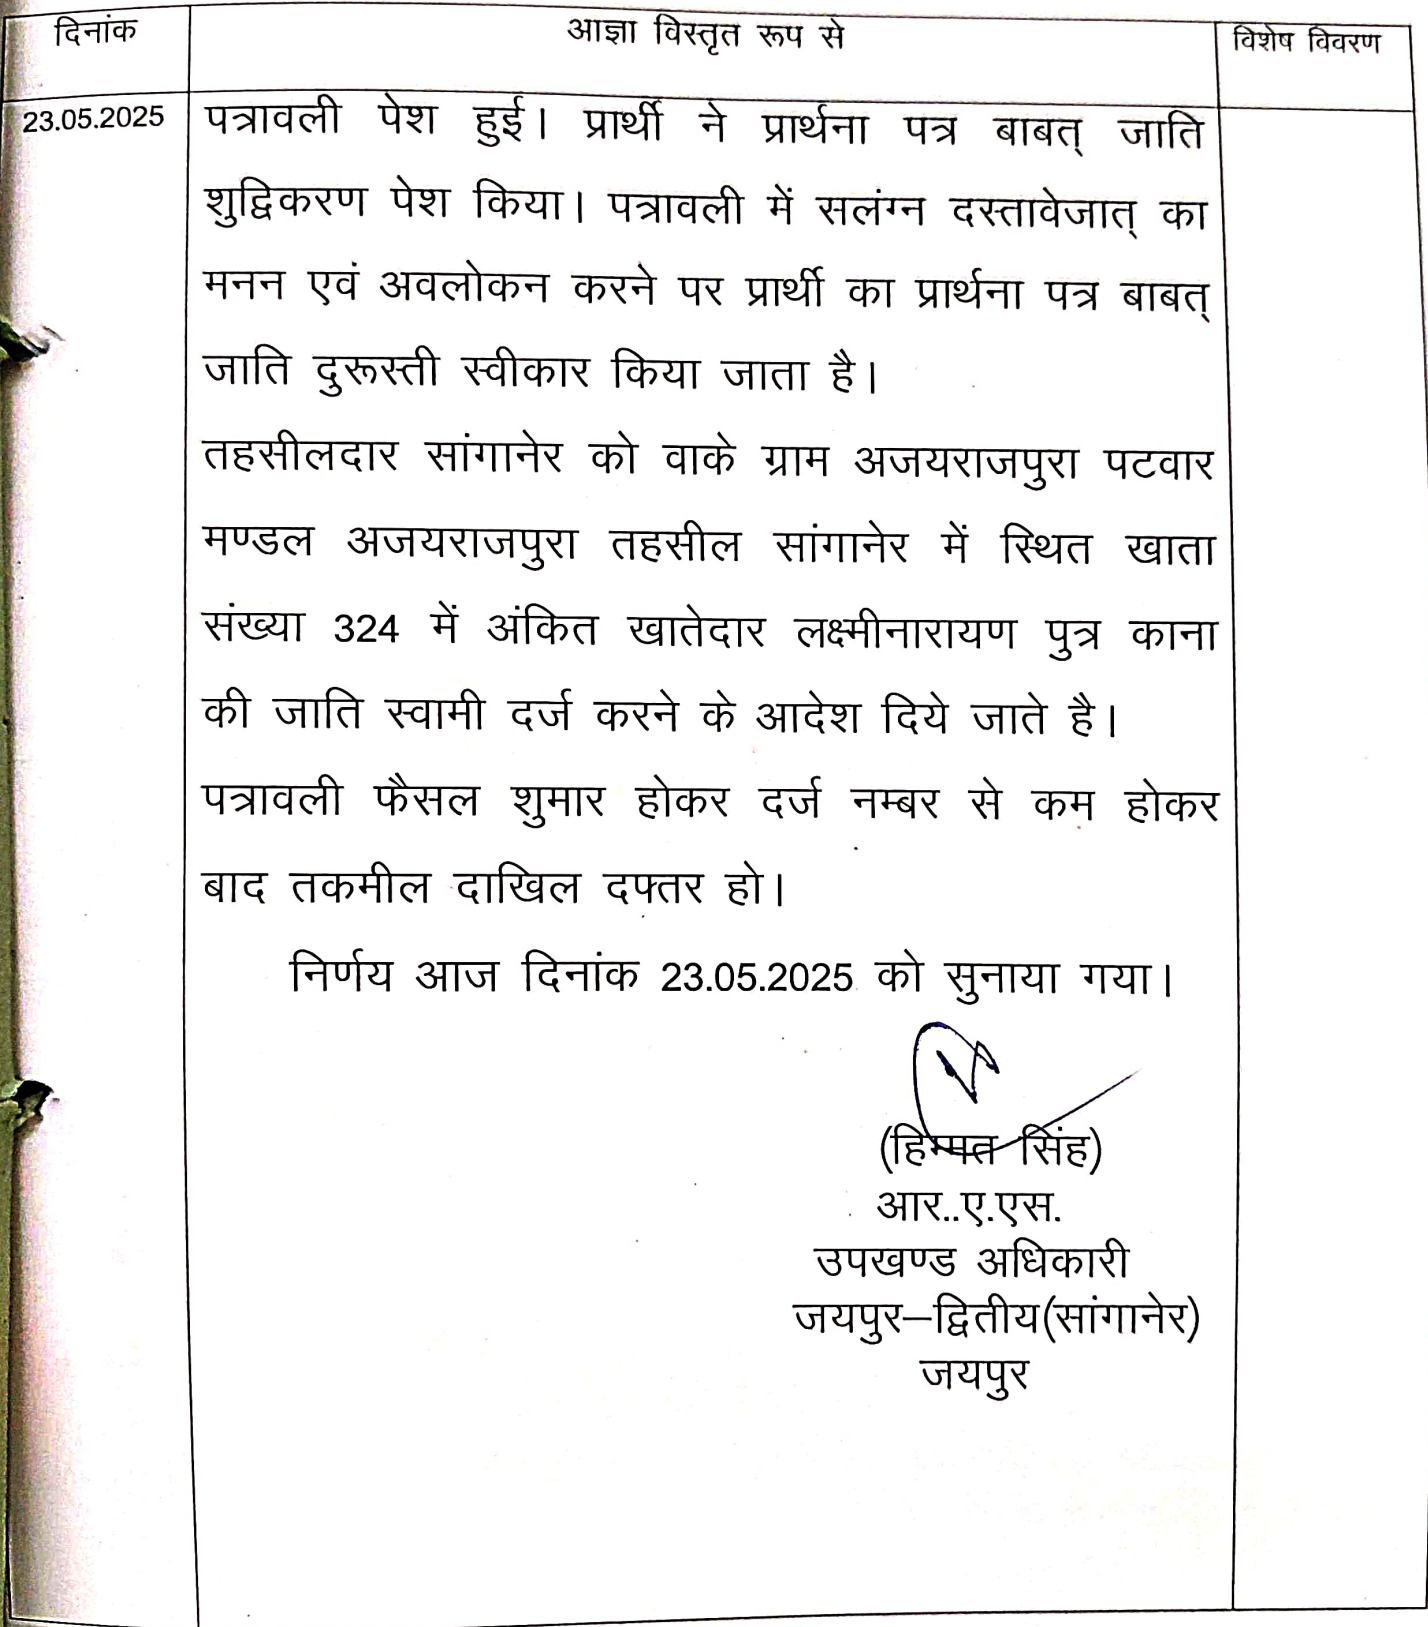 दिनांक
आज्ञा विस्तृत रूप से
विशेष विवरण
23.05.2025
पत्रावली पेश हुई। प्रार्थी ने प्रार्थना पत्र बाबत् जाति
शुद्विकरण पेश किया। पत्रावली में सलंग्न दस्तावेजात् का
मनन एवं अवलोकन करने पर प्रार्थी का प्रार्थना पत्र बाबत्
जाति दुरूस्ती स्वीकार किया जाता है।
तहसीलदार सांगानेर को वाके ग्राम अजयराजपुरा पटवार
मण्डल अजयराजपुरा तहसील सांगानेर में स्थित खाता
संख्या 324 में अंकित खातेदार लक्ष्मीनारायण पुत्र काना
की जाति स्वामी दर्ज करने के आदेश दिये जाते है।
पत्रावली फैसल शुमार होकर दर्ज नम्बर से कम होकर
बाद तकमील दाखिल दफ्तर हो।
निर्णय आज दिनांक 23.05.2025 को सुनाया गया।
(हिम्मत सिंह)
आर..ए.एस.
उपखण्ड अधिकारी
जयपुर–द्वितीय(सांगानेर)
जयपुर